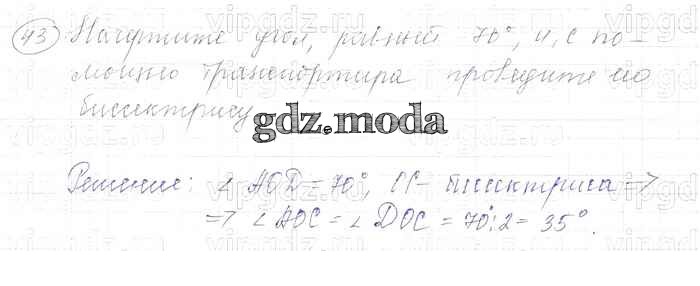 43 Начертите угол, равный 70°, и, с по-
мощью транспортира проведите его
биссектрису
gdz.moda
Решение: ∠ AOD = 70°, OC - биссектриса =>
=> ∠ AOC = ∠ DOC = 70°:2 = 35°.